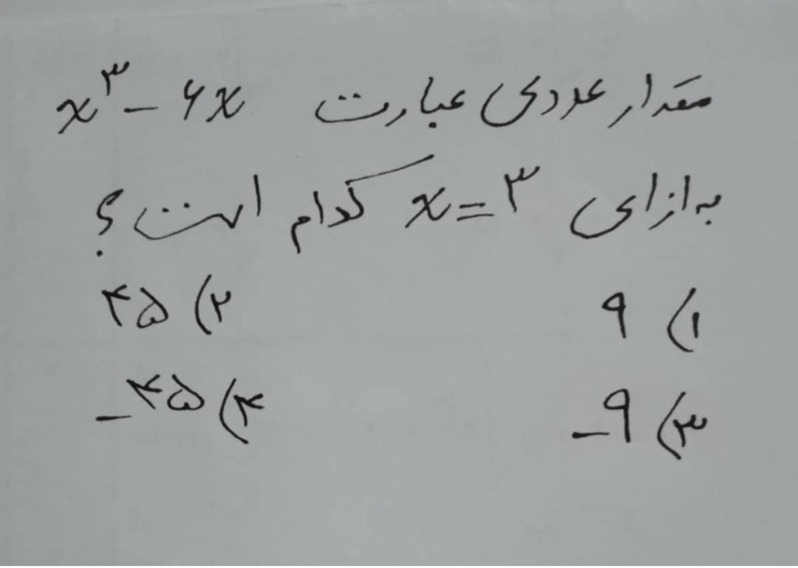 مقدار عددی عبارت x³ − ۶x
به ازای x = ۳ کدام است؟
۱) ۹ ۲) ۴۵
۳) ۹− ۴) ۴۵−